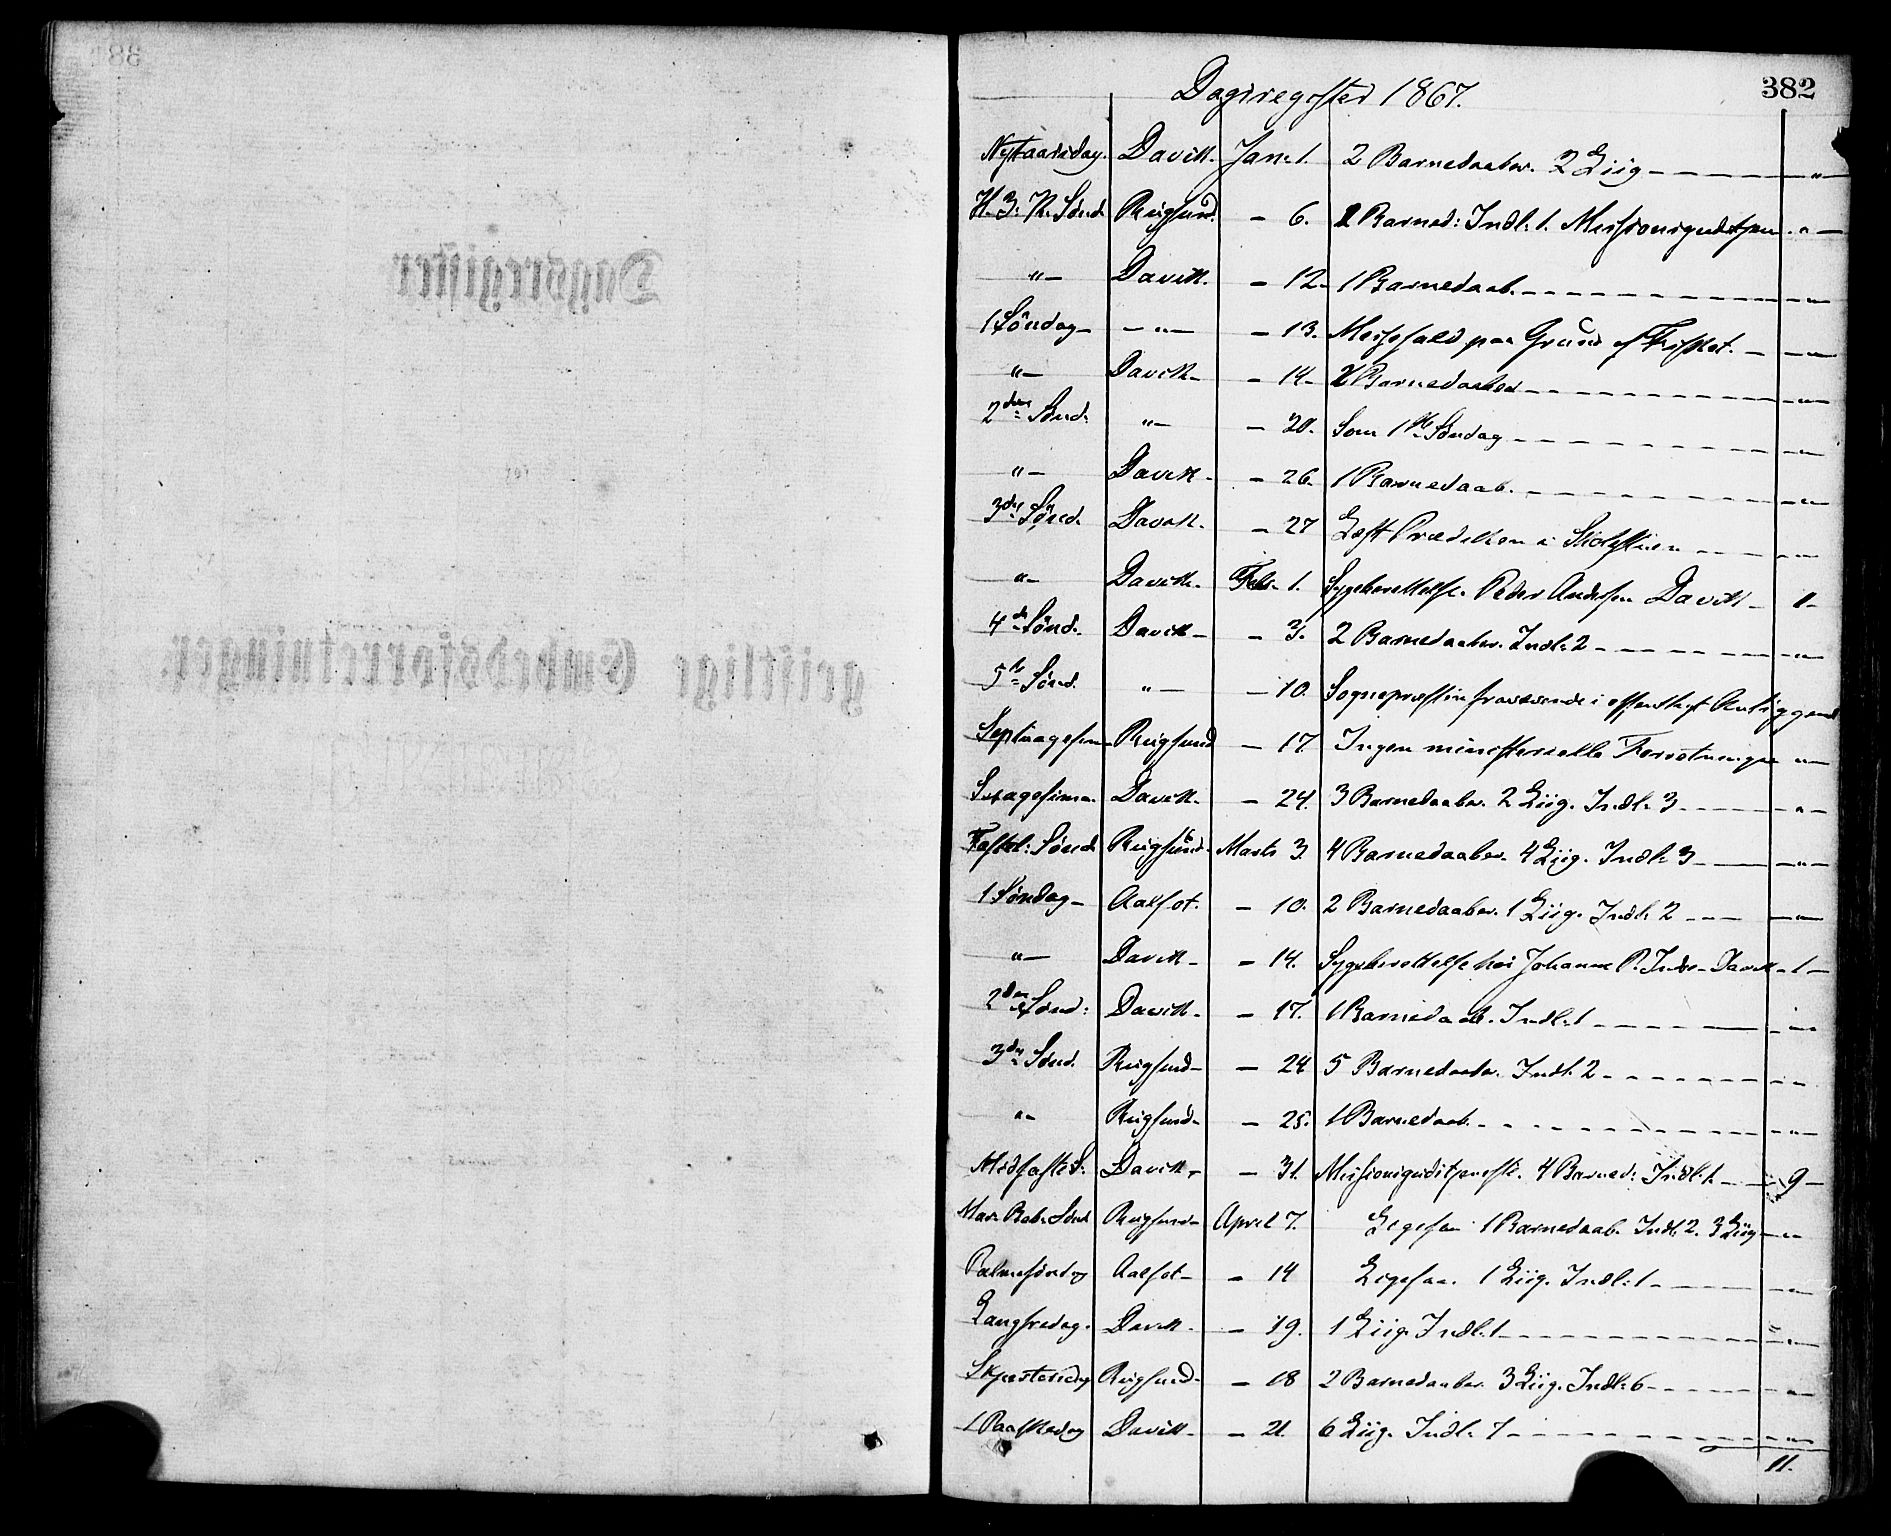 Dagsregister 1867.
382
Nytaarsdag. Davik. Jan. 1. 2 Barnedaaber. 2 Liig - - - "
H. 3. K. Sönd. Rugsund. - 6. 2 Barned: Indl. 1. Missionsgudstjen. "
" - Davik. - 12. 1 Barnedaab. - - - "
1 Söndag - - " - - 13. Messefald paa Grund af Fisket. - "
" - Davik - - 14. 2 Barnedaaber - - - "
2den Sönd: " - - 20. Som 1ste Söndag - - - "
" - Davik - - 26. 1 Barnedaab. - - - "
3die Sönd. Davik. - 27 Læst Prædiken i Skolestuen - - - "
" - Davik - Feb. 1. Sygeberettelse. Peder Andersen Davik - 1 -
4de Sönd. Davik - - 3. 2 Barnedaaber. Indl. 2 - - - "
5te Sönd. " - - 10. Sognepræsten fraværende i offentligt Anliggend
Septuagesima Rugsund - 17 Ingen ministerielle Forretninger "
Sexagesima. Davik. - 24. 3 Barnedaaber. 2 Liig. Indl. 3 - - - "
Fastel: Sönd. Rugsund. Marts 3. 4 Barnedaaber. 4 Liig. Indl. 3 - - "
1 Söndag - Aalfot. - 10. 2 Barnedaaber. 1 Liig. Indl. 2 - - "
" - Davik - - 14. Sygeberettelse hos Johanne P. Davik - 1 -
2den Sönd: Davik - - 17. 1 Barnedaab. Indl. 1 - - - "
3die Sönd. Rugsund - - 24 5 Barnedaaber. Indl. 2 - - - "
" - Rugsund - - 25. 1 Barnedaab. - - - "
Midfaste S. Davik - - 31. Missionsgudstjeneste. 4 Barned: Indl. 1. - - 9 -
Mar. Beb. Sönd Rugsund - April 7. Ligesaa 1 Barnedaab. Indl. 2. 3 Liig - "
Palmesöndag Aalfot - - 14 Ligesaa. 1 Liig. Indl. 1 - - - "
Langfredag. Davik. - 19. 1 Liig. Indl. 1 - - - "
Skjærtorsdag Rugsund - - 18 2 Barnedaaber. 3 Liig. Indl. 6 - - - "
1 Paaskedag Davik - - 21. 6 Liig. Indl. 7 - - - "
11.